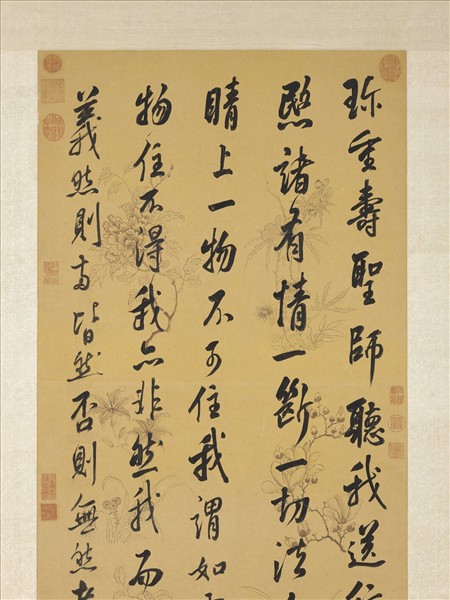 珎重壽聖師聽我送行
愍諸有情一斷一切法
睛上一物不可住我謂如
物住不得我亦非然我而
義然則兩皆然否則無然者